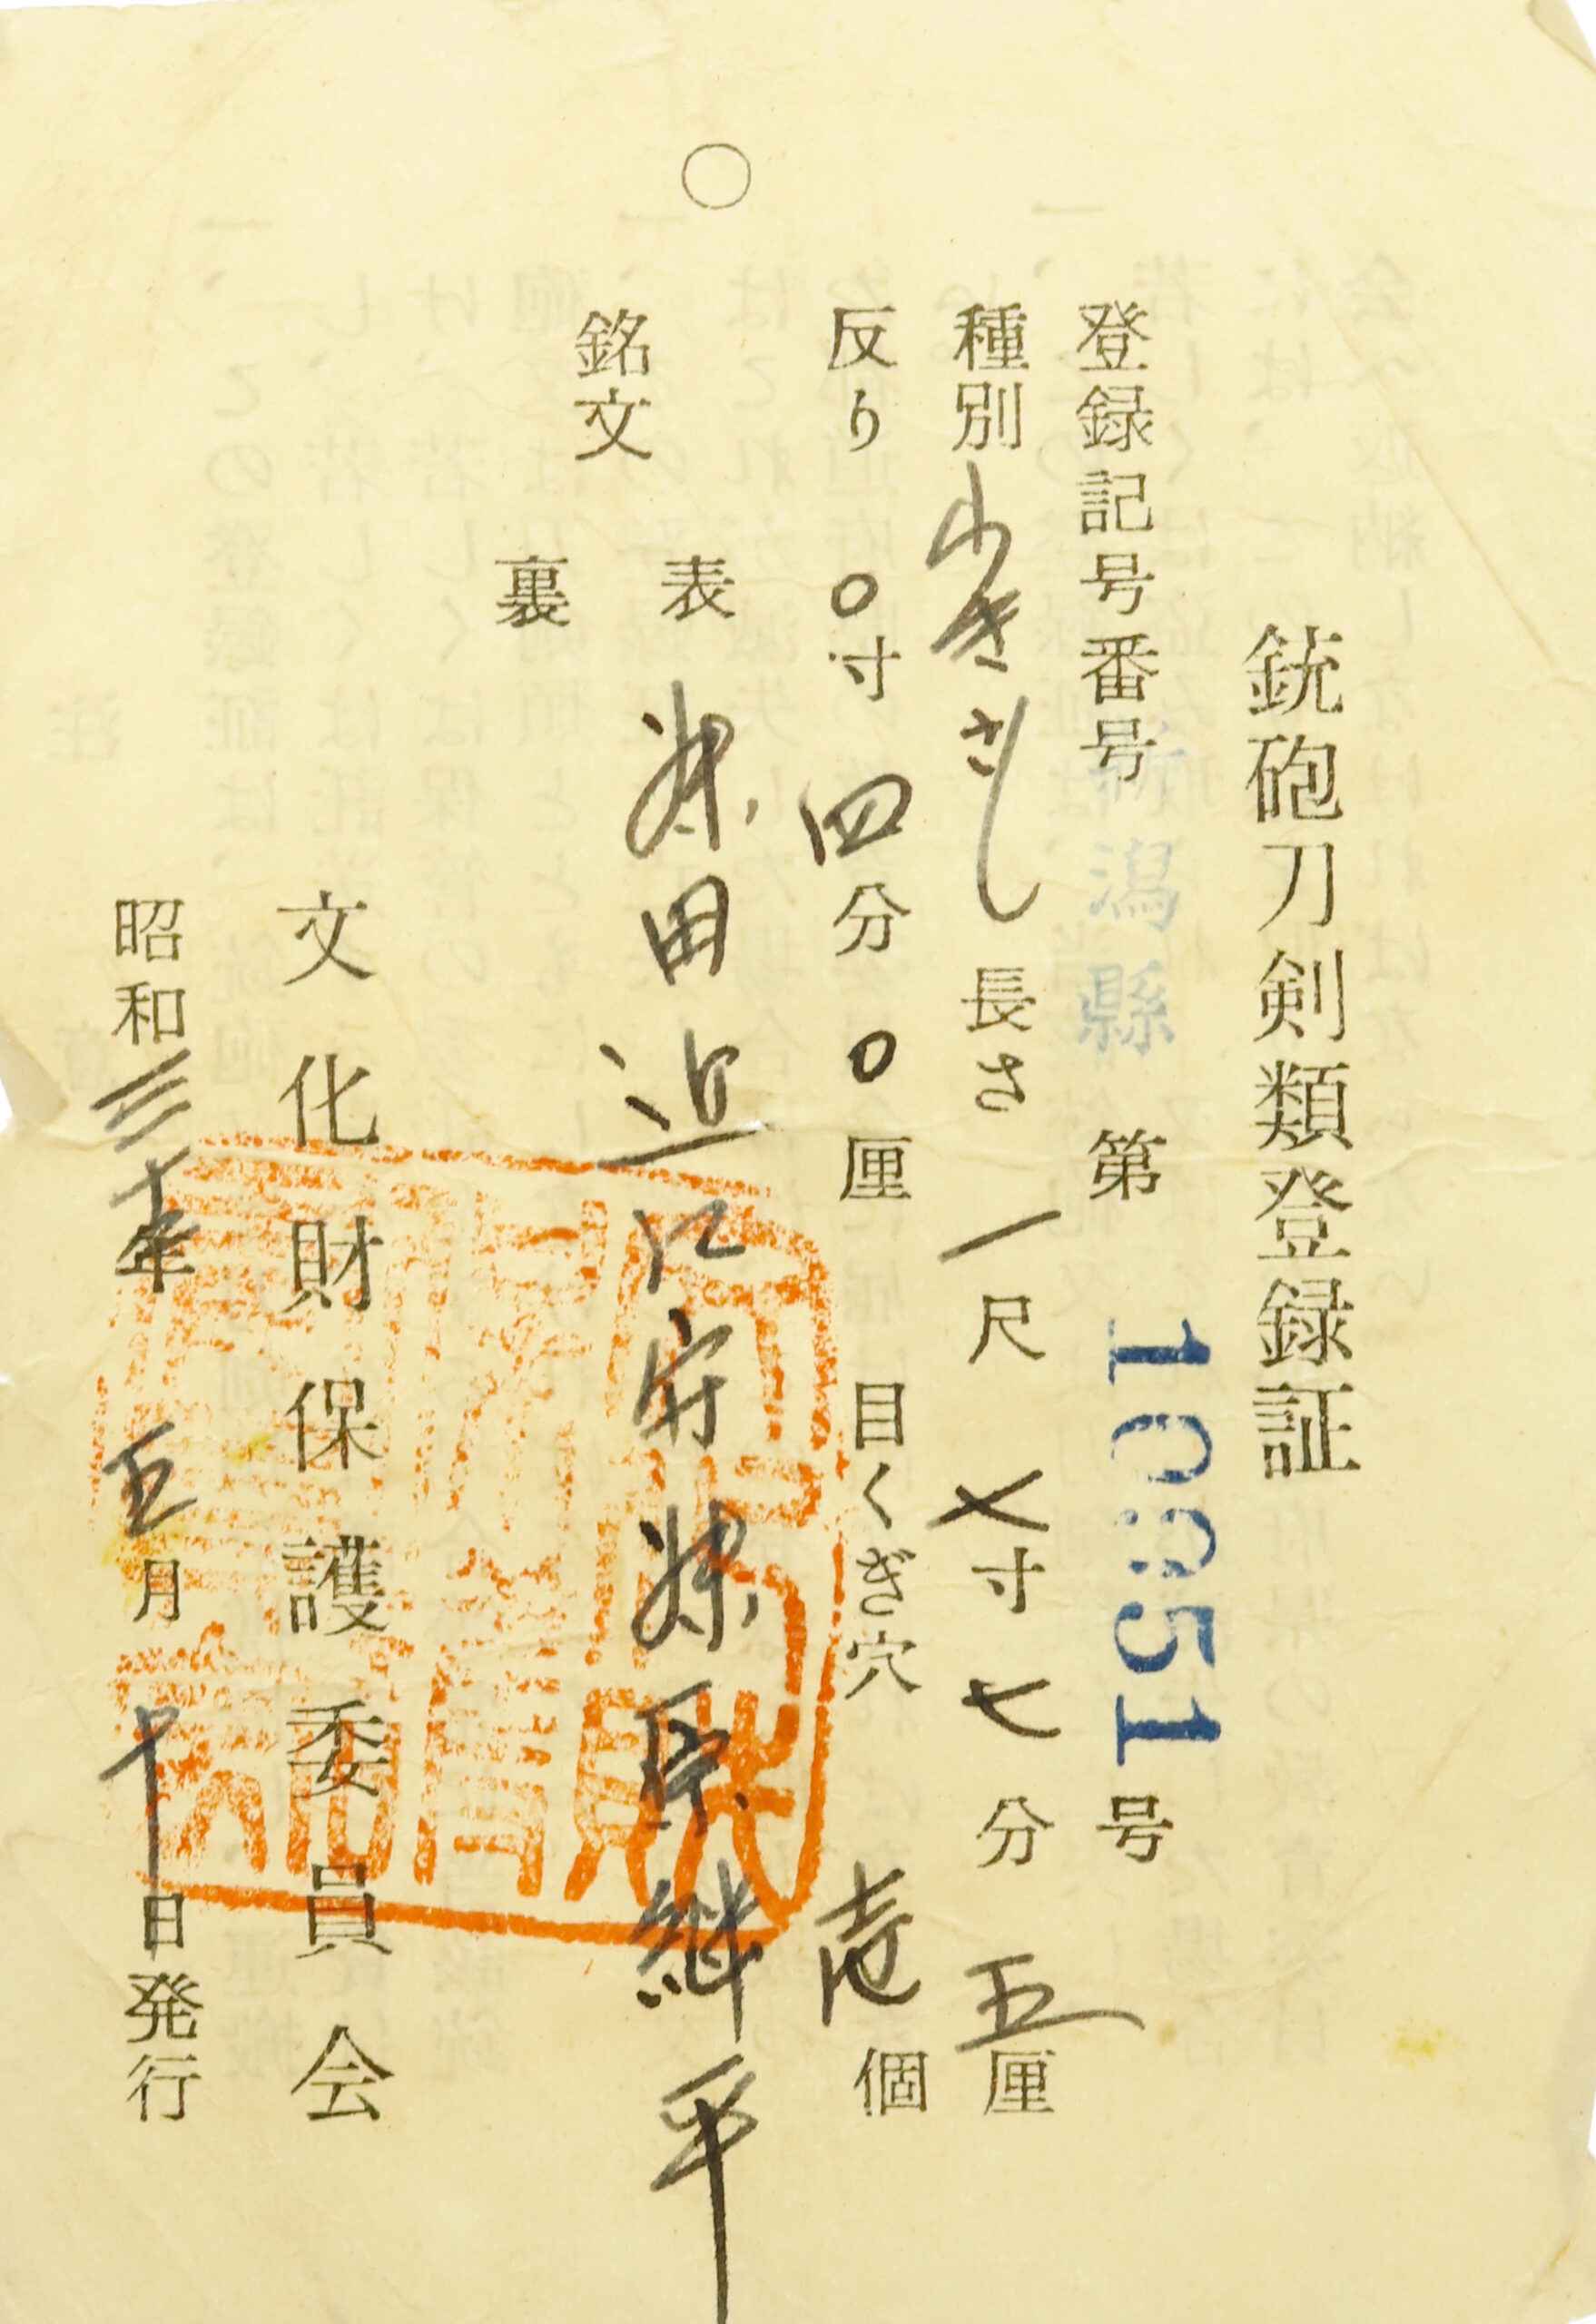 銃砲刀剣類登録証
登録記号番号 新潟縣 第 号
種別 わきさし 長さ 一尺 寸 七分 五厘
反り 〇寸 四分 〇厘 目くぎ穴 壱個
銘文
表 藤田近江守藤原継平
裏
文化財保護委員会
昭和三十年五月十日発行